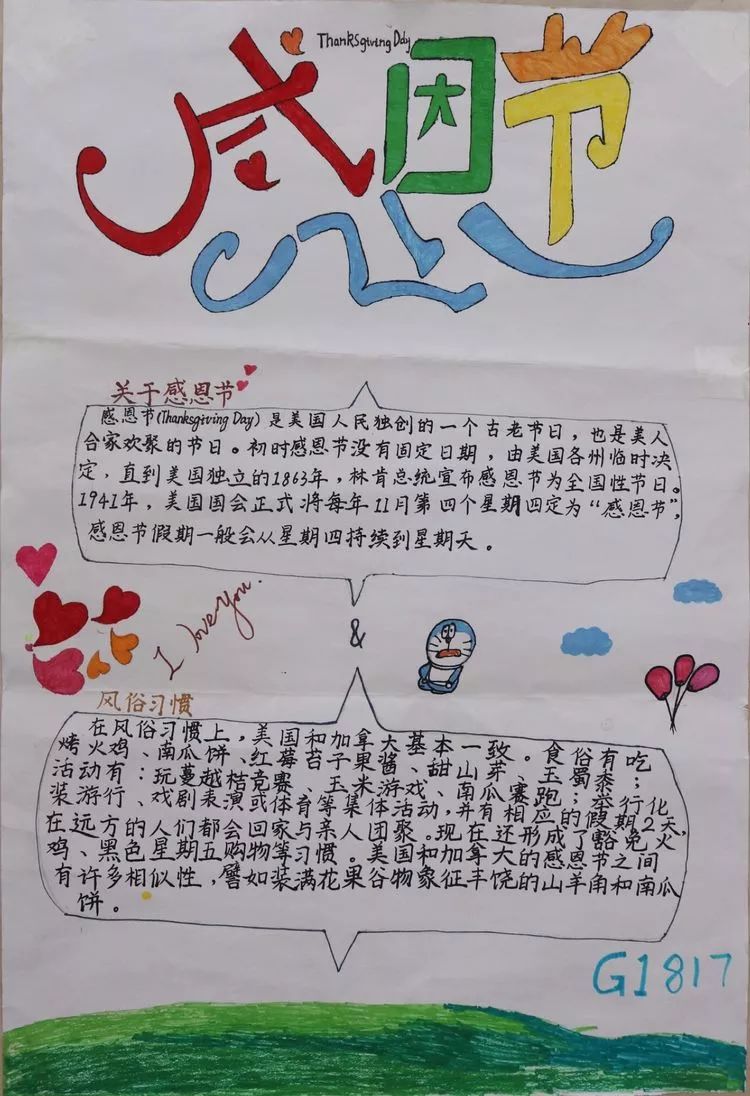 Thanksgiving Day
感恩节
关于感恩节
感恩节(Thanksgiving Day)是美国人民独创的一个古老节日，也是美人
合家欢聚的节日。初时感恩节没有固定日期，由美国各州临时决
定，直到美国独立的1863年，林肯总统宣布感恩节为全国性节日。
1941年，美国国会正式将每年11月第四个星期四定为“感恩节”，
感恩节假期一般会从星期四持续到星期天。
I love you.
&
风俗习惯
在风俗习惯上，美国和加拿大基本一致。食俗有吃
烤火鸡、南瓜饼、红莓苔子果酱、甜山芋、玉蜀黍；
活动有：玩蔓越桔竞赛、玉米游戏、南瓜赛跑；举行化
装游行、戏剧表演或体育等集体活动，并有相应的假期2天，
在远方的人们都会回家与亲人团聚。现在还形成了豁免火
鸡、黑色星期五购物等习惯。美国和加拿大的感恩节之间
有许多相似性，譬如装满花果谷物象征丰饶的山羊角和南瓜
饼。
G1817